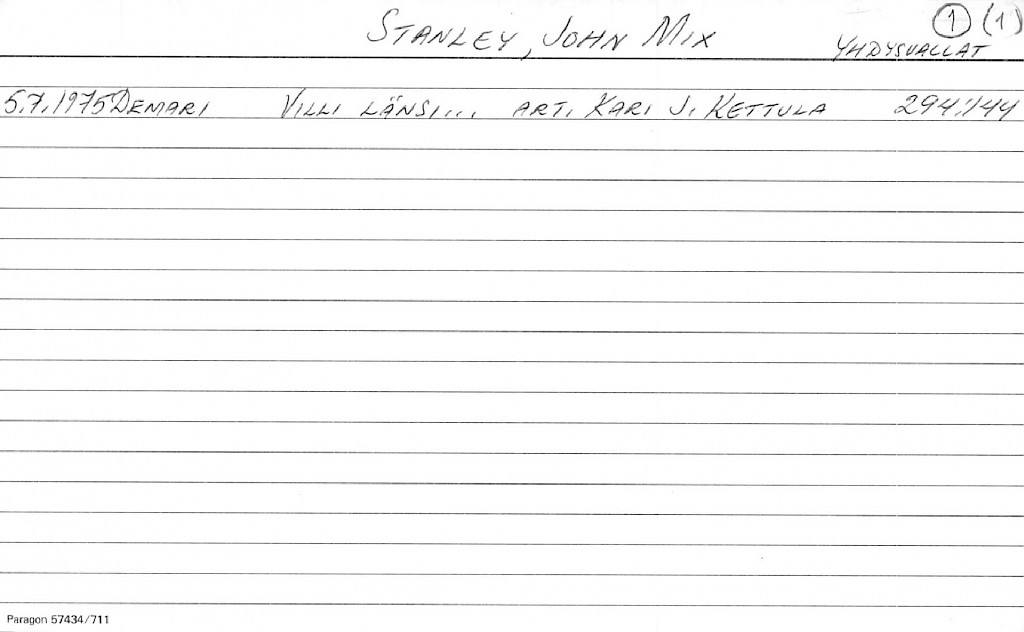 STANLEY, JOHN MIX
1 (1)
YHDYSVALLAT
5.7.1975 DEMARI VILLI LÄNSI... ART. KARI J. KETTULA 294:/44
Paragon 57434/711